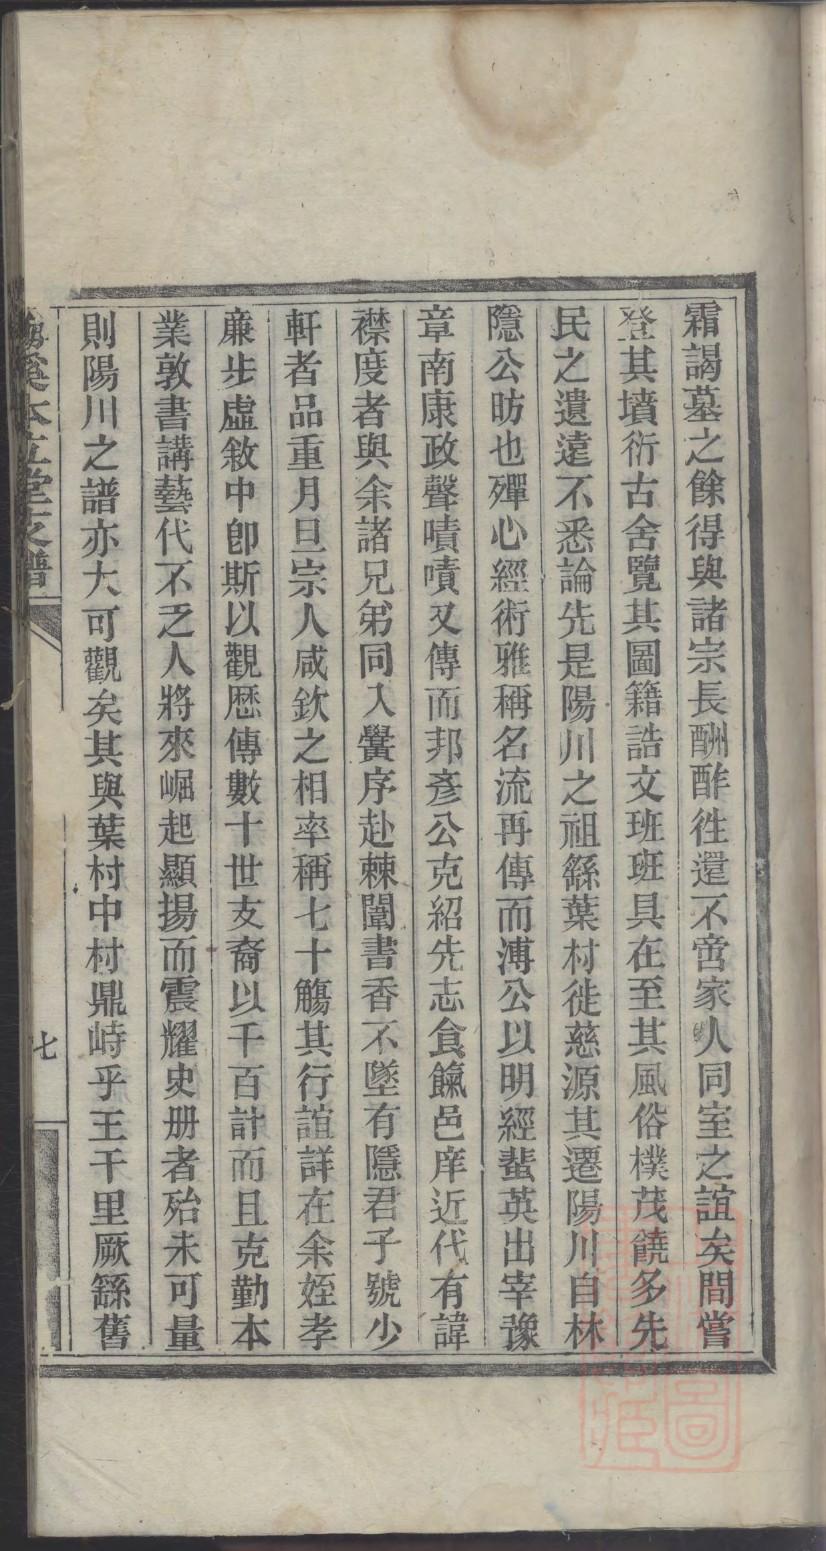 霜謁墓之餘得與諸宗長酬酢徃還不啻家人同室之誼矣間嘗
登其墳衍古舍覽其圖籍誥文班班具在至其風俗樸茂饒多先
民之遺遠不悉論先是陽川之祖繇葉村徙慈源其遷陽川自林
隱公昉也殫心經術雅稱名流再傳而溥公以明經蜚英出宰豫
章南康政聲嘖嘖又傳而邦彥公克紹先志食餼邑庠近代有諱
襟度者與余諸兄弟同入黌序赴棘闈書香不墜有隱君子號少
軒者品重月旦宗人咸欽之相率稱七十觴其行誼詳在余姪孝
廉步虛敘中卽斯以觀歷傳數十世支裔以千百計而且克勤本
業敦書講藝代不乏人將來崛起顯揚而震耀史册者殆未可量
則陽川之譜亦大可觀矣其與葉村中村鼎峙乎王干里厥繇舊
溪本立堂支譜
七